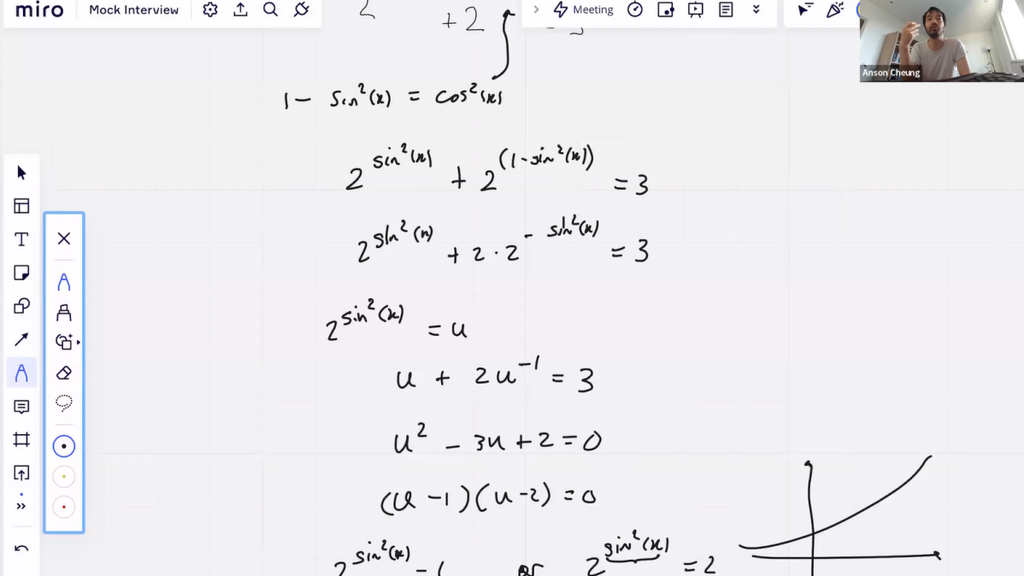 miro Mock Interview Meeting
Anson Cheung
2 + 2 ∫
1 - sin²(x) = cos²(x)
2^sin²(x) + 2^(1-sin²(x)) = 3
2^sin²(x) + 2·2^-sin²(x) = 3
2^sin²(x) = u
u + 2u^-1 = 3
u² - 3u + 2 = 0
(u - 1)(u - 2) = 0
2^sin²(x) = 1 or 2^sin²(x) = 2